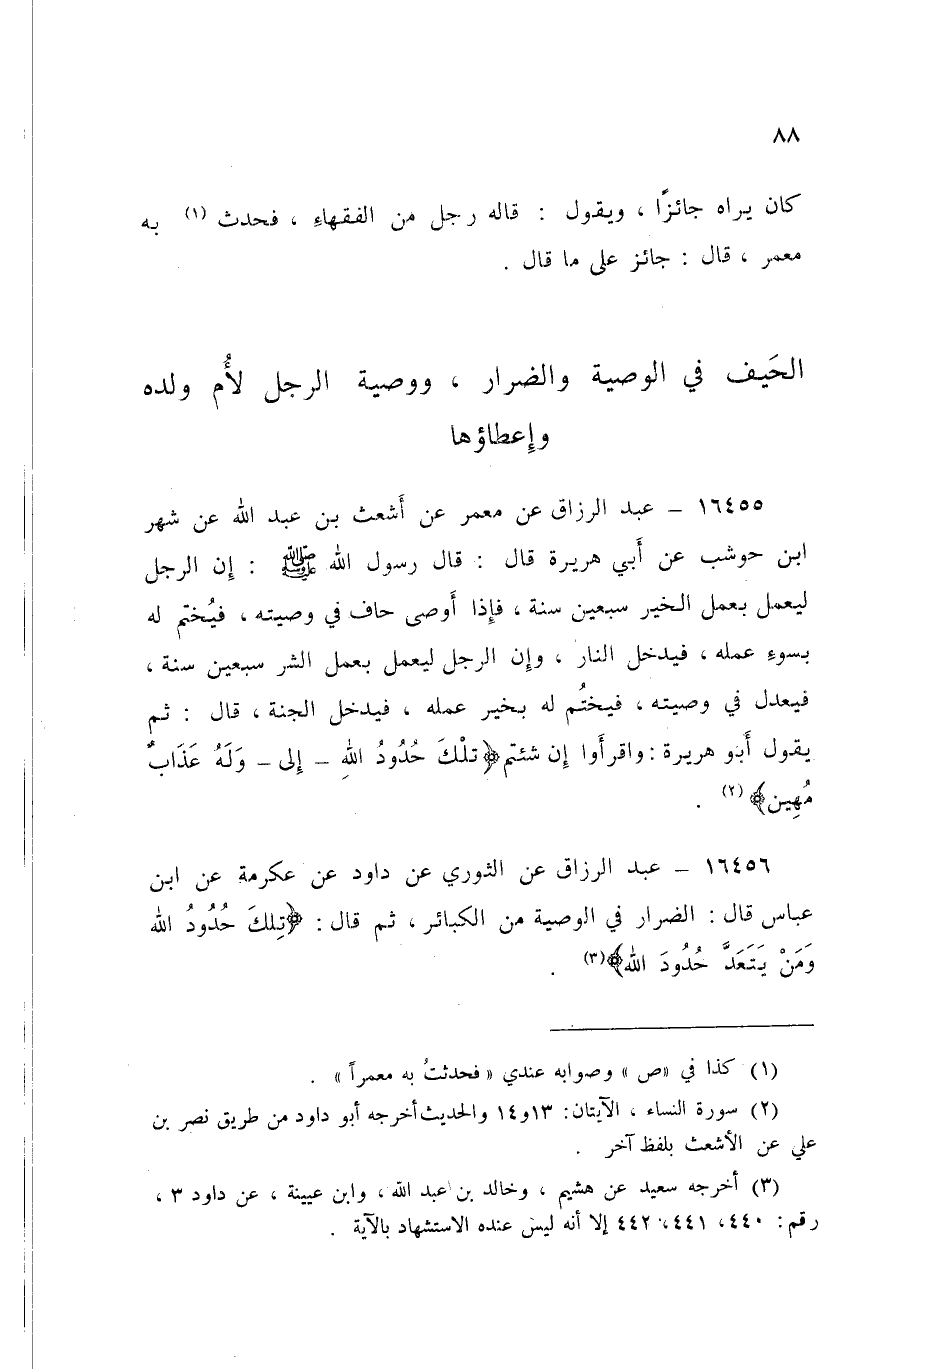 ٨٨
كان يراه جائزًا ، ويقول : قاله رجل من الفقهاءِ ، فحدث (١) به
معمر ، قال : جائز على ما قال .
الحَيف في الوصية والضرار ، ووصية الرجل لأُم ولده
وإعطاؤها
١٦٤٥٥ – عبد الرزاق عن معمر عن أَشعث بن عبد الله عن شهر
ابن حوشب عن أَبي هريرة قال : قال رسول الله ﷺ : إن الرجل
ليعمل بعمل الخير سبعين سنة ، فإذا أَوصى حاف في وصيته ، فيُختم له
بسوءِ عمله ، فيدخل النار ، وإن الرجل ليعمل بعمل الشر سبعين سنة ،
فيعدل في وصيته ، فيختُم له بخير عمله ، فيدخل الجنة ، قال : ثم
يقول أَبو هريرة : واقرأوا إن شئتم ﴿تلْكَ حُدُودُ اللهِ – إلى – وَلَهُ عَذَابٌ
مُهِين﴾ (٢) .
١٦٤٥٦ – عبد الرزاق عن الثوري عن داود عن عكرمة عن ابن
عباس قال : الضرار في الوصية من الكبائر ، ثم قال : ﴿تِلكَ حُدُودُ الله
وَمَنْ يَتَعَدَّ حُدُودَ الله﴾(٣) .
(١) كذا في «ص» وصوابه عندي « فحدثتُ به معمراً » .
(٢) سورة النساء ، الآيتان: ١٣و١٤ والحديث أخرجه أبو داود من طريق نصر بن
علي عن الأشعث بلفظ آخر .
(٣) أخرجه سعيد عن هشيم ، وخالد بن عبد الله ، وابن عيينة ، عن داود ٣ ،
رقم: ٤٤٠، ٤٤١، ٤٤٢ إلا أنه ليس عنده الاستشهاد بالآية .